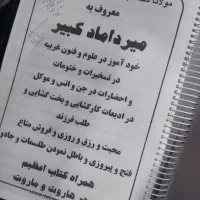 معروف به
میر داماد کبیر
خود آموز در علوم و فنون غریبه
در تسخیرات و ختومات
و احضارات در جن و انس و موکل
در ادعیات کارگشایی و بخت گشایی و
طلب فرزند
محبت و رزق و روزی و فروش متاع
فتح و پیروزی و باطل نمودن طلسمات و جادو
همراه کتاب اعظیم
هاروت و ماروت